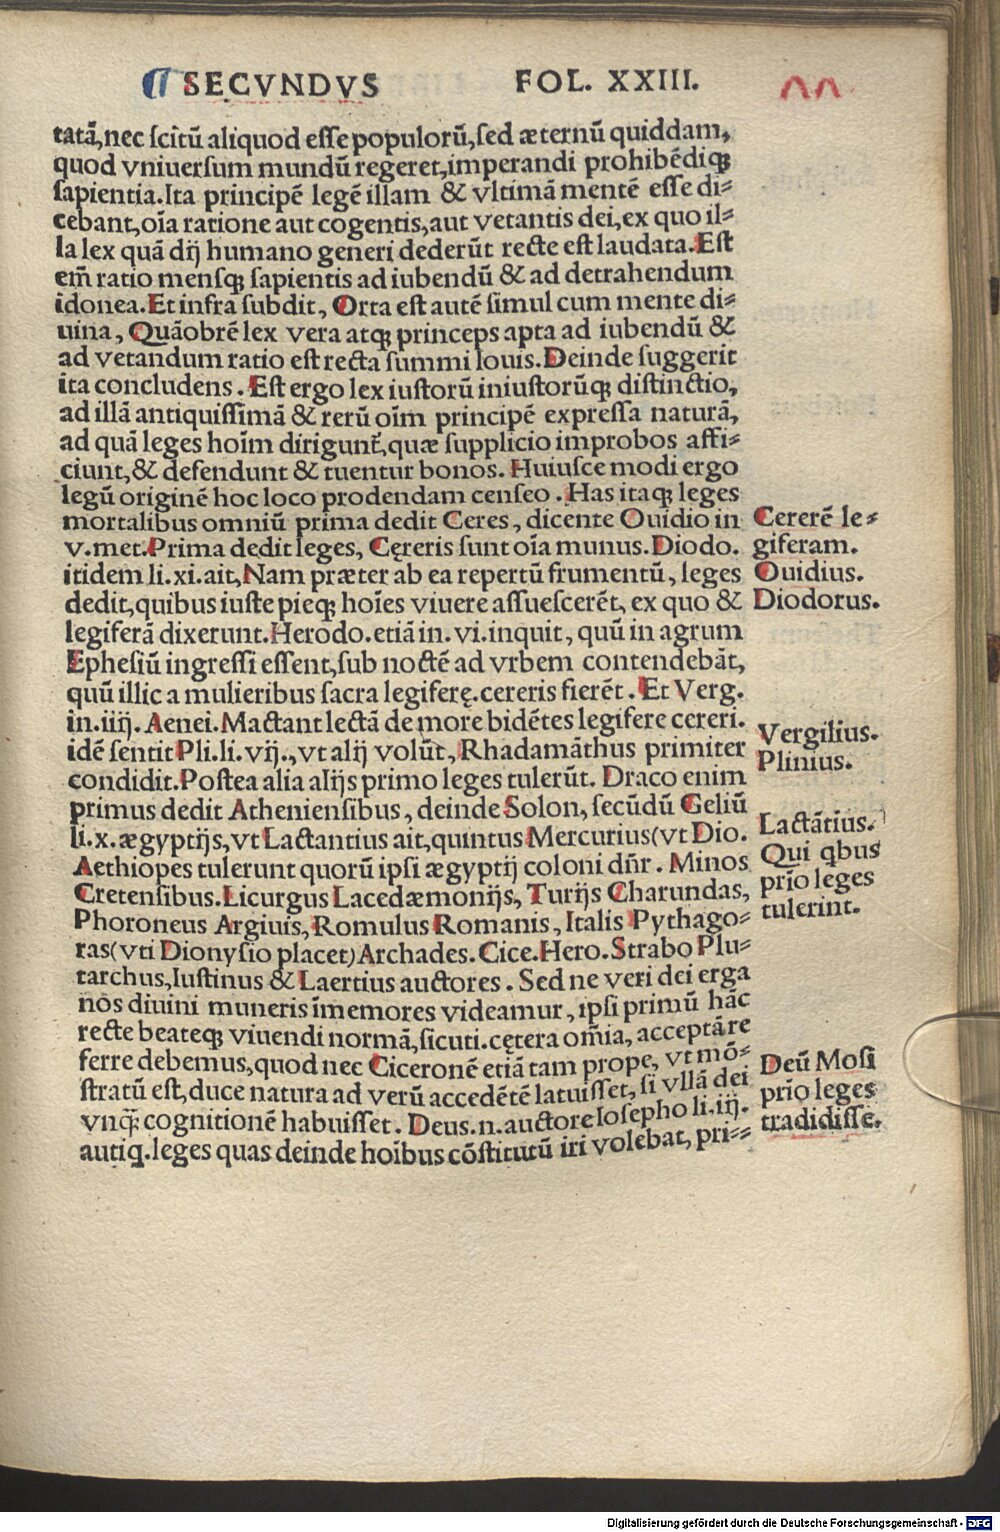 SECVNDVS FOL. XXIII.
tatā,nec ſcitū aliquod eſſe populorū,ſed æternū quiddam,
quod vniuerſum mundū regeret,imperandi prohibēdiqꝫ
ſapientia.Ita principē legē illam & vltimā mentē eſſe di⸗
cebant,oīa ratione aut cogentis,aut vetantis dei,ex quo il⸗
la lex quā dij humano generi dederūt recte eſt laudata.Eſt
em̄ ratio menſqꝫ ſapientis ad iubendū & ad detrahendum
idonea.Et infra ſubdit, Orta eſt autē ſimul cum mente di⸗
uina, Quāobrē lex vera atqꝫ princeps apta ad iubendū &
ad vetandum ratio eſt recta ſummi Iouis.Deinde ſuggerit
ita concludens. Eſt ergo lex iuſtorū iniuſtorūqꝫ diſtinctio,
ad illā antiquiſſimā & rerū oīm principē expreſſa naturā,
ad quā leges hoīm dirigunt̄,quæ ſupplicio improbos affi⸗
ciunt,& defendunt & tuentur bonos. Huiuſce modi ergo
legū originē hoc loco prodendam cenſeo. Has itaqꝫ leges
mortalibus omniū prima dedit Ceres, dicente Ouidio in
v.met.Prima dedit leges, Cęreris ſunt oīa munus.Diodo.
itidem li.xi.ait,Nam præter ab ea repertū frumentū, leges
dedit,quibus iuſte pieqꝫ hoīes viuere aſſueſcerēt, ex quo &
legiferā dixerunt.Herodo.etiā in.vi.inquit, quū in agrum
Epheſiū ingreſſi eſſent,ſub noctē ad vrbem contendebāt,
quū illic a mulieribus ſacra legiferę.cereris fierēt. Et Verg.
in.iiij.Aenei.Mactant lectā de more bidētes legifere cereri.
idē ſentit Pli.li.vij.,vt alij volūt, Rhadamāthus primiter
condidit.Poſtea alia alijs primo leges tulerūt. Draco enim
primus dedit Athenienſibus, deinde Solon, ſecūdū Geliū
li.x.ægyptijs,vt Lactantius ait,quintus Mercurius(vt Dio.
Aethiopes tulerunt quorū ipſi ægyptij coloni dn̄r. Minos
Cretenſibus.Licurgus Lacedæmonijs, Turijs Charundas,
Phoroneus Argiuis, Romulus Romanis, Italis Pythago⸗
ras(vti Dionyſio placet)Archades.Cice.Hero.Strabo Plu⸗
tarchus,Iuſtinus & Laertius auctores. Sed ne veri dei erga
nos diuini muneris īmemores videamur, ipſi primū hāc
recte beateqꝫ viuendi normā,ſicuti.cętera om̄ia, acceptā re
ferre debemus,quod nec Ciceronē etiā tam prope, vt mō⸗
ſtratū eſt,duce natura ad verū accedētē latuiſſet,ſi vllā dei
vnqꝫ̄ cognitionē habuiſſet. Deus.n.auctore Ioſepho li.iij.
autiq.leges quas deinde hoībus cōſtitutū iri volebat, pri⸗⸗
Cererē le⸗
giferam.
Ouidius.
Diodorus.
Vergilius.
Plinius.
Lactātius.
Qui qbus
prīo leges
tulerint.
Deū Moſi
prīo leges
tradidiſſe.
Digitalisierung gefördert durch die Deutsche Forschungsgemeinschaft - DFG